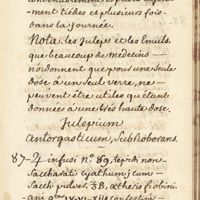 ment tiédes et plusieurs fois
dans la journée.
Nota. les Juleps et les Emuls.
que beaucoup de médecins
n'ordonnent que pour une seule
dose à un seul verre, ne
peuvent être utiles qu'étant
données à une très haute dose.
Julepium
antorgasticum, Subroborans.
87 ℞ infusi n.º 89, tepidi non
Sacchari cyathum j cum
Sacchi pulver. ℥ß, ætheris